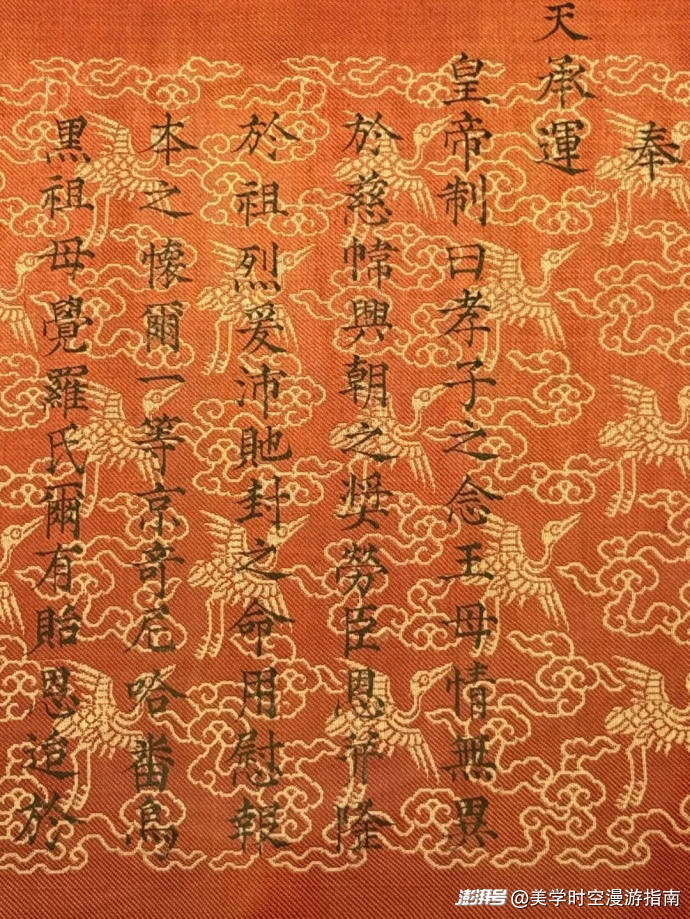 奉
天承運
皇帝制曰孝子之念王母情無異
於慈幃興朝之獎勞臣恩并隆
於祖烈爰沛貤封之命用慰報
本之懷爾一等京奇尼哈番烏
黑祖母覺羅氏爾有貽恩追於
澎湃号@美学时空漫游指南